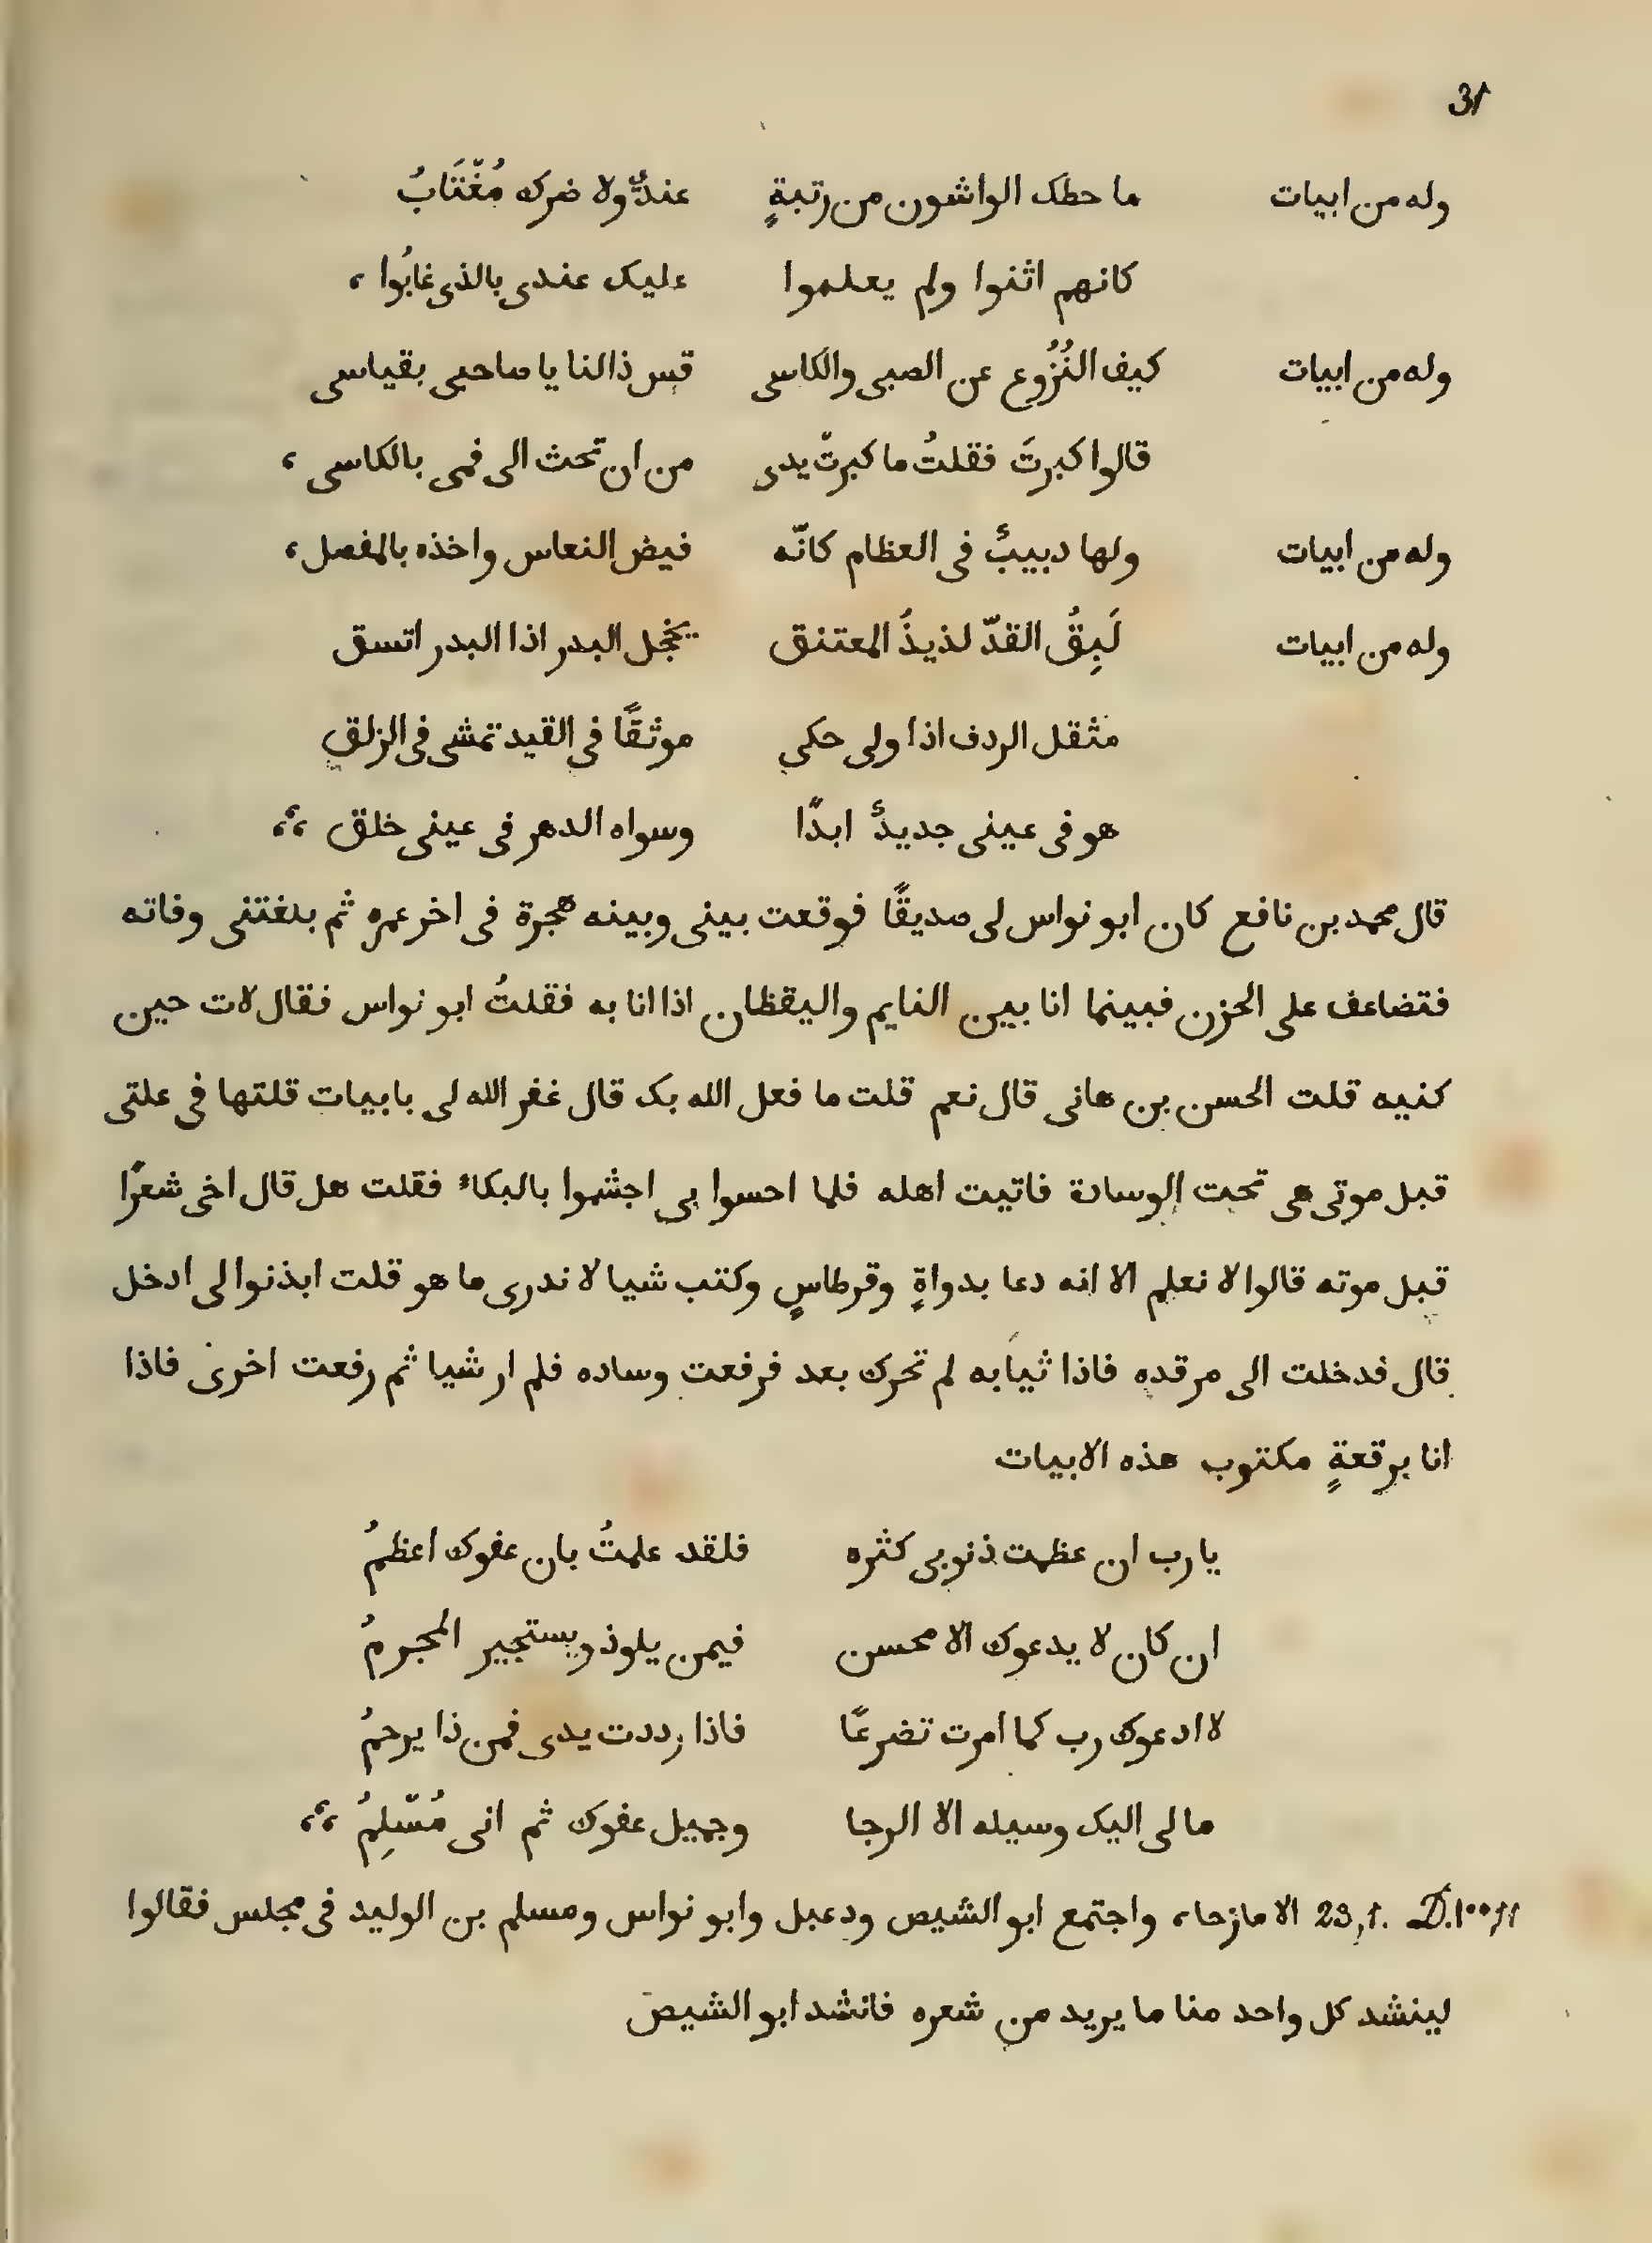 31
وله من ابيات ما حطك الواشون من رتبةٍ عندىّ ولا ضرك مُغْتَابُ
كانهم اثنوا ولم يعلموا عليك عندى بالذى غابُوا ،
وله من ابيات كيف النُزُوع عن الصبى والكاسى قس ذالنا يا صاحبى بقياسى
قالوا كبرتَ فقلتُ ما كبرتْ يدى من ان تحث الى فمى بالكاسى ،
وله من ابيات ولها دبيبٌ فى العظام كانّه فيض النعاس واخذه بالمفصل ،
وله من ابيات لَبِقُ القدّ لذيذُ المعتنق يخجل البدر اذا البدر اتسق
مثقل الردف اذا ولى حكى موثقًا فى القيد تمشى فى الزلق
هو فى عينى جديدٌ ابدًا وسواه الدهر فى عينى خلق ،،،
قال محمد بن نافع كان ابو نواس لى صديقًا فوقعت بينى وبينه هجرة فى اخر عمره ثم بلغتنى وفاته
فتضاعف على الحزن فبينما انا بين النايم واليقظان اذا انا به فقلتُ ابو نواس فقال لات حين
كنيه قلت الحسن بن هانى قال نعم قلت ما فعل الله بك قال غفر الله لى بابيات قلتها فى علتى
قبل موتى هى تحت الوسادة فاتيت اهله فلما احسوا بى اجشهوا بالبكاء فقلت هل قال اخى شعرًا
قبل موته قالوا لا نعلم الا انه دعا بدواةٍ وقرطاسٍ وكتب شيا لا ندرى ما هو قلت ايذنوا لى ادخل
قال فدخلت الى مرقده فاذا ثيابه لم تحرك بعد فرفعت وساده فلم ار شيا ثم رفعت اخرى فاذا
انا برقعةٍ مكتوب هذه الابيات
يا رب ان عظمت ذنوبى كثره فلقد علمتُ بان عفوك اعظمُ
ان كان لا يدعوك الا محسن فيمن يلوذ ويستجير المجرمُ
لا ادعوك رب كما امرت تضرعًا فاذا رددت يدى فمن ذا يرحمُ
ما لى اليك وسيله الا الرجا وجميل عفوك ثم انى مُسّلِمُ ،،،
23,1. الا مازحا ، واجتمع ابو الشيص ودعبل وابو نواس ومسلم بن الوليد فى مجلس فقالوا
لينشد كل واحد منا ما يريد من شعره فانشد ابو الشيص